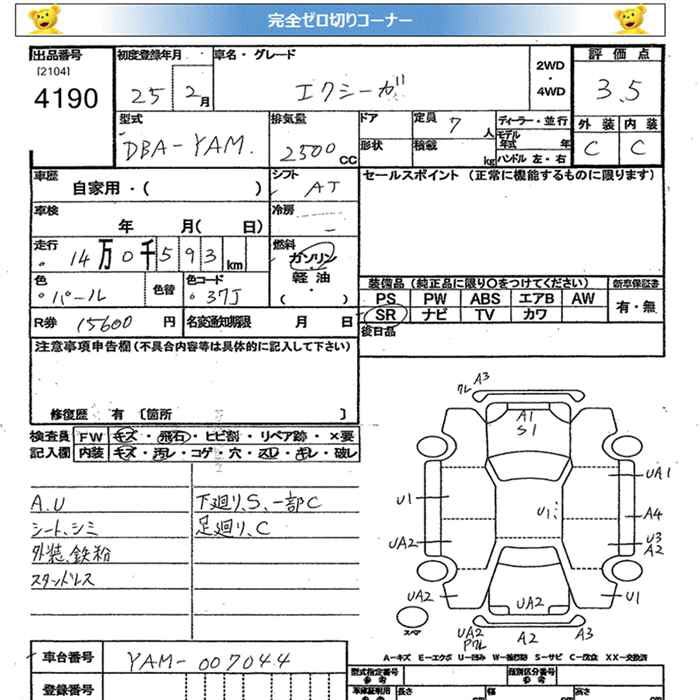 完全ゼロ切りコーナー
出品番号 初度登録年月 車名・グレード 2WD・4WD 評価点
[2104]
4190 25 2月 エクシーガ 3.5
型式 排気量 ドア 定員 7人 ディーラー・並行 外装 内装
モデル年式 年
DBA-YAM. 2500CC 形状 積載 kg ハンドル 左・右 C C
車歴 自家用・( ) シフト AT セールスポイント (正常に機能するものに限ります)
車検 年 月( 日) 冷房
走行 14万0千593km 燃料 ガソリン・軽油・( )
色 パール 色替 色コード 37J 装備品 (純正品に限り○をつけてください) 新車保証書
PS PW ABS エアB AW 有・無
R券 15600円 名変通知期限 月 日 SR ナビ TV カワ
後日品
注意事項申告欄 (不具合内容等は具体的に記入して下さい)
修復歴 有 [箇所 ]
検査員 FW キズ・飛石・ヒビ割・リペア跡・×要
記入欄 内装 キズ・汚レ・コゲ・穴・スレ・ギレ・破レ
A.U 下廻り、S、一部C
シート、シミ 足廻り、C
外装、鉄粉
スタッドレス
ワレ A3
A1
S1
U1 U1 UA1
A4
UA2 U3
A2
UA2 UA2 U1
スペア
UA2 A2 A3
Pワレ
A-キズ E-エクボ U-凹み W-補修跡 S-サビ C-腐食 XX-交換済
車台番号 YAM-007044 型式指定番号 参考 類別区分番号 参考
登録番号 長さ 幅 高さ